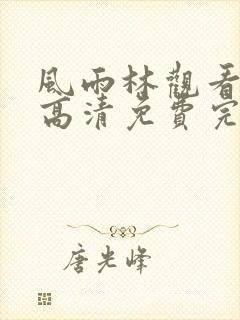 風雨林觀看
高清免費完
唐光峰